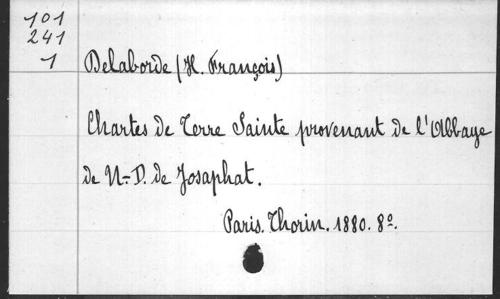 101
241
1
Delaborde (H. François)
Chartes de Terre Sainte provenant de l'Abbaye
de N.-D. de Josaphat.
Paris. Thorin. 1880. 8º.